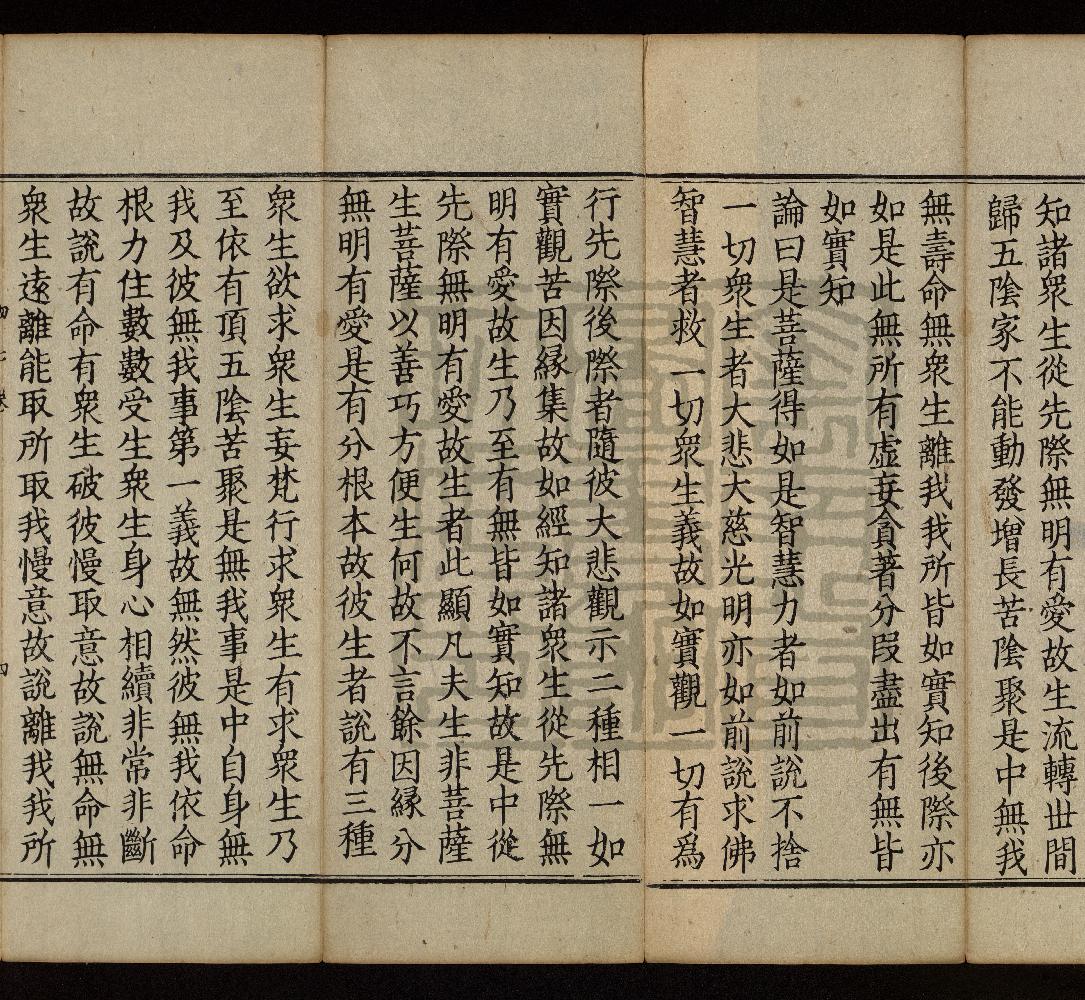 知諸衆生從先際無明有愛故生流轉世間
歸五陰家不能動發增長苦陰聚是中無我
無壽命無衆生離我我所皆如實知後際亦
如是此無所有虛妄貪著分段盡出有無皆
如實知
論曰是菩薩得如是智慧力者如前說不捨
一切衆生者大悲大慈光明亦如前說求佛
智慧者救一切衆生義故如實觀一切有爲
行先際後際者隨彼大悲觀示二種相一如
實觀苦因縁集故如經知諸衆生從先際無
明有愛故生乃至有無皆如實知故是中從
先際無明有愛故生者此顯凡夫生非菩薩
生菩薩以善巧方便生何故不言餘因縁分
無明有愛是有分根本故彼生者說有三種
衆生欲求衆生妄梵行求衆生有求衆生乃
至依有頂五陰苦聚是無我事是中自身無
我及彼無我事第一義故無然彼無我依命
根力住數數受生衆生身心相續非常非斷
故說有命有衆生破彼慢取意故說無命無
衆生遠離能取所取我慢意故說離我我所